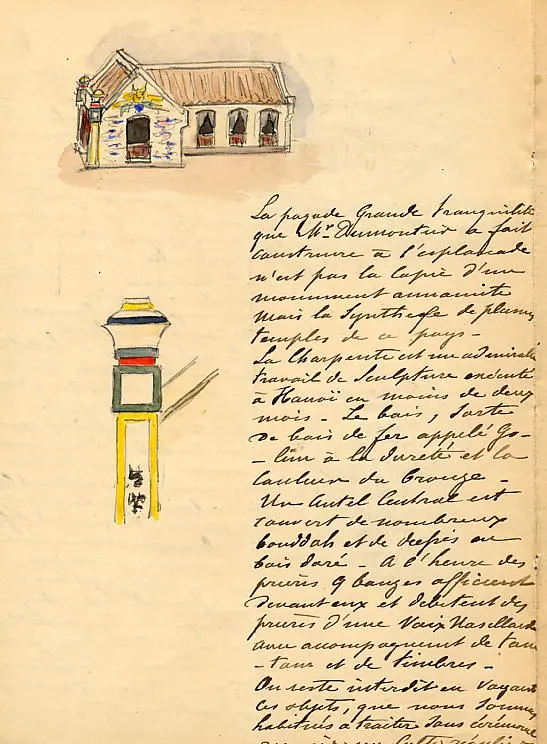 La pagode Grande tranquillité
que Mr Dumoutier a fait
construire à l'esplanade
n'est pas la copie d'un
monument annamite
mais la synthèse de plusieurs
temples de ce pays -
La Charpente est un admirable
travail de Sculpture exécuté
à Hanoï en moins de deux
mois - Le bois, sorte
De bois de fer appelé Go-
- lim à la dureté et la
couleur du bronze -
Un Autel Central est
couvert de nombreux
bouddah et de déesses en
bois doré - A l'heure des
prières 9 bonzes officieront
devant eux et débitent des
prières d'une Voix Nasillarde
avec accompagnement de tam
- tam et de timbres -
On reste interdit en voyant
ces objets, que nous sommes
habitués à traiter sans cérémonie